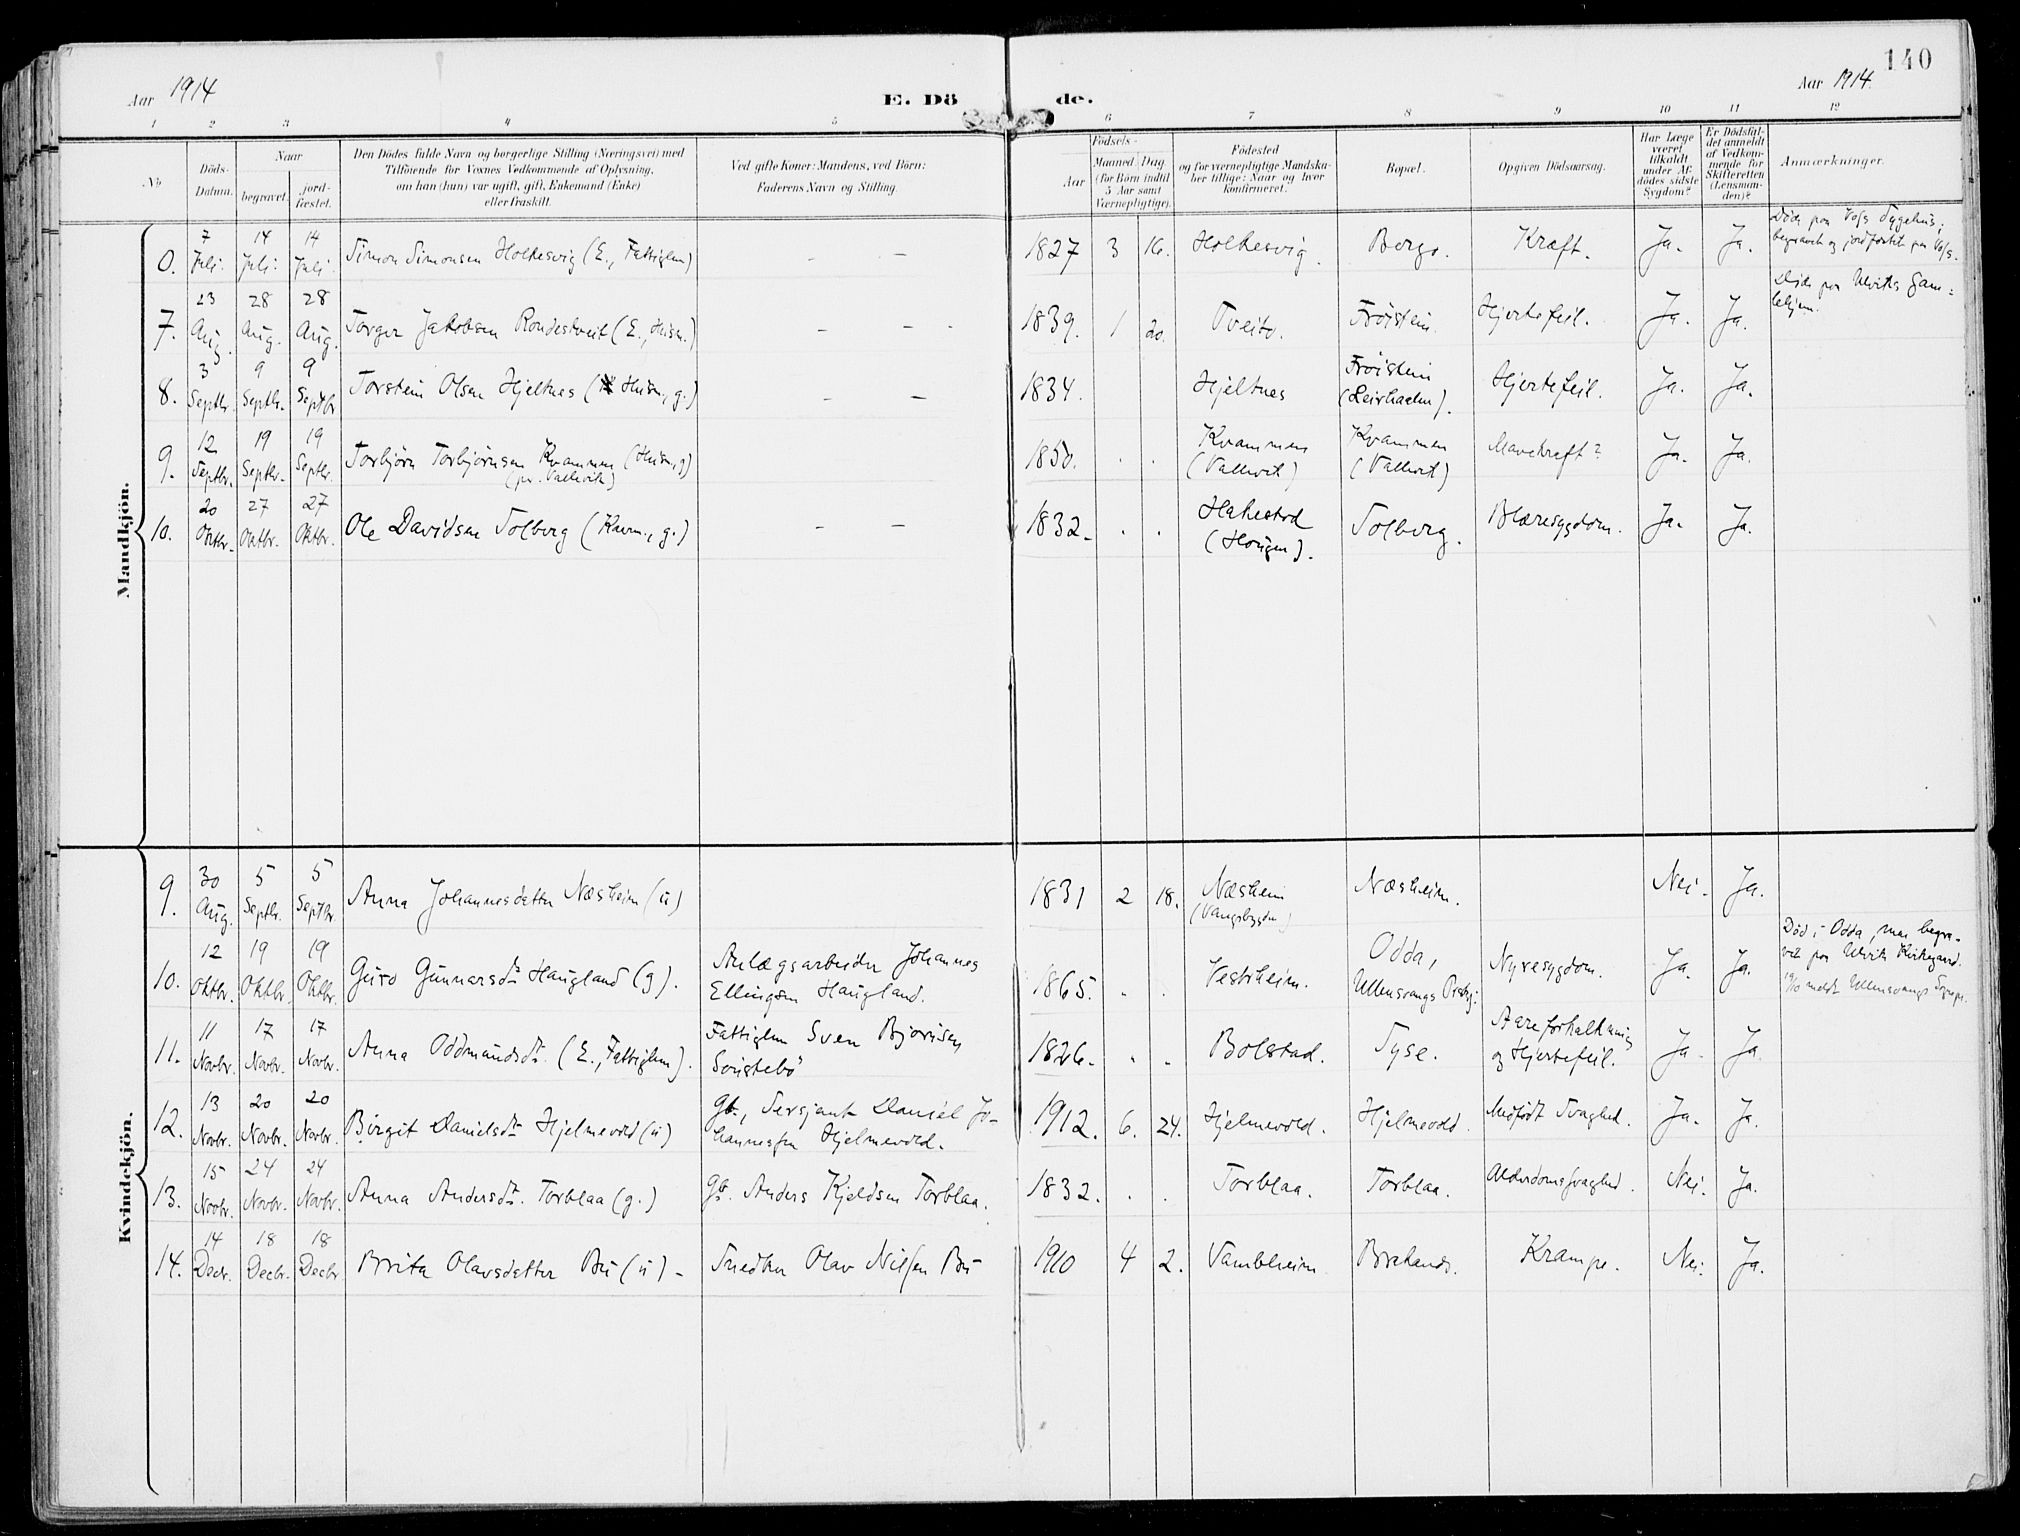 140
Aar 1914
E. Döde.
Aar 1914.
1 2 3 4 5 6 7 8 9 10 11 12
No
Döds-Datum.
Naar
begravet.
jord-fæstet.
Den Dödes fulde Navn og borgerlige Stilling (Næringsvei) med
Tilföiende for Voxnes Vedkommende af Oplysning,
om han (hun) var ugift, gift, Enkemand (Enke)
eller fraskilt.
Ved gifte Koner: Mandens, ved Börn:
Faderens Navn og Stilling.
Födsels-
Aar
Maaned Dag
(for Börn indtil
5 Aar samt
Værnepligtige).
Födested
og for værnepligtige Mandska-
ber tillige: Naar og hvor
konfirmeret.
Bopæl.
Opgiven Dödsaarsag.
Har Læge
været
tilkaldt
under Af-
dödes sidste
Sygdom?
Er Dödsfal-
det anmeldt
af Vedkom-
mende for
Skifteretten
(Lensman-
den)?
Anmærkninger.
Mandkjön.
0. 7 Juli. 14 Juli. 14 Juli. Simon Simonsen Holkesvig (E., Fattiglem) - - 1827 3 16. Holkesvig. Berge. Kræft. Ja. Ja. Döde paa Voss Sygehus;
begravet og jordfæstet paa Voss.
7. 23 Aug. 28 Aug. 28 Aug. Torger Jakobsen Rondestveit (E., Husm.) - - 1839. 1 20. Tveito. Fröistein. Hjertefeil. Ja. Ja. Döde paa Ulviks Gam=
lehjem.
8. 3 Septbr. 9 Septbr. 9 Septbr. Torstein Olsen Hjeltnes (Husm., g.) - - 1834. Hjeltnes Fröistein
(Leirhaalen). Hjertefeil. Ja. Ja.
9. 12 Septbr. 19 Septbr. 19 Septbr. Torbjörn Torbjörnsen Kvammen (Husm., g)
(pr. Vallevik) 1850. . . Kvammen
(Vallevik) Kvammen
(Vallevik) Mavekræft? Ja. Ja.
10. 20 Oktbr. 27 Oktbr. 27 Oktbr. Ole Davidsen Solberg (Kaarm., g.) - - 1832. . . Hakestad
(Hougen). Solberg. Blæresygdom. Ja. Ja.
Kvindekjön.
9. 30 Aug. 5 Septbr. 5 Septbr. Anna Johannesdatter Næsheim (u) 1831 2 18. Næsheim
(Vangsbygden) Næsheim. Nei. Ja.
10. 12 Oktbr. 19 Oktbr. 19 Oktbr. Guro Gunnarsdt. Haugland (g). Anlægsarbeider Johannes
Ellingsen Haugland. 1865. . . Vestrheim. Odda,
Ullensvangs Prestgj. Nyresygdom. Ja. Ja. Död i Odda, men begra-
vet paa Ulviks Kirkegaard.
19/10 meldt Ullensvangs Sognepr.
11. 11 Novbr. 17 Novbr. 17 Novbr. Anna Oddmundsdt. (E., Fattiglem). Fattiglem Sven Bjornsen
Soustebö 1826. . . Bolstad. Tyse. Aareforkalkning
og Hjertefeil. Ja. Ja.
12. 13 Novbr. 20 Novbr. 20 Novbr. Birgit Danielsdt. Hjelmevold (u) Gb., Sersjant Daniel Jo-
hannessen Hjelmevold. 1912. 6. 24. Hjelmevold. Hjelmevold. Medfödt Svaghed. Ja. Ja.
13. 15 Novbr. 24 Novbr. 24 Novbr. Anna Andersdt. Torblaa (g.) Gb. Anders Kjeldsen Torblaa. 1832. . . Torblaa. Torblaa. Alderdomssvaghed. Nei. Ja.
14. 14 Decbr. 18 Decbr. 18 Decbr. Brita Olavsdatter Bu (u) - Snedker Olav Nilsen Bu 1910 4 2. Vambheim Brakanes. Krampe. Nei. Ja.